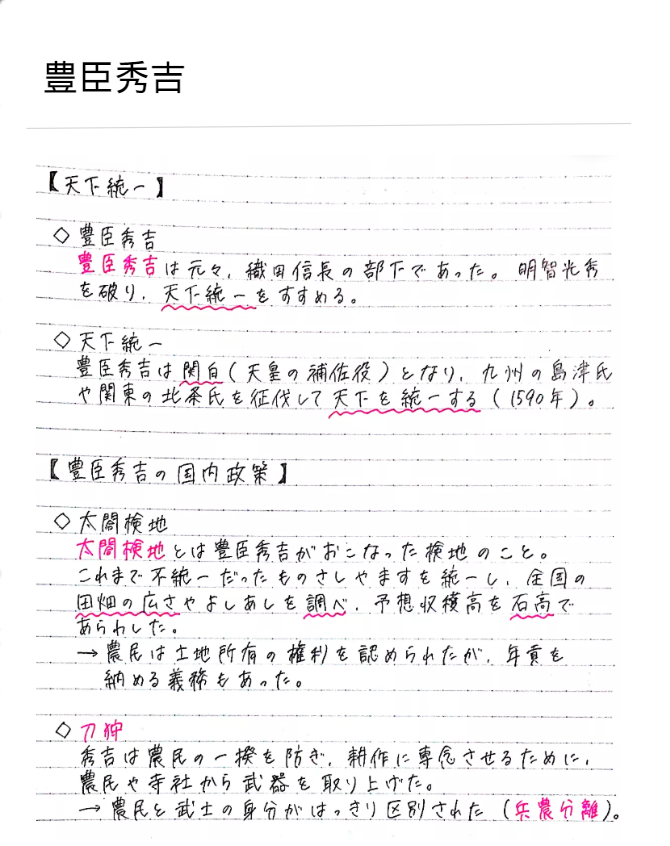 豊臣秀吉
【天下統一】
◇ 豊臣秀吉
豊臣秀吉は元々、織田信長の部下であった。明智光秀
を破り、天下統一をすすめる。
◇ 天下統一
豊臣秀吉は関白(天皇の補佐役)となり、九州の島津氏
や関東の北条氏を征伐して天下を統一する(1590年)。
【豊臣秀吉の国内政策】
◇ 太閤検地
太閤検地とは豊臣秀吉がおこなった検地のこと。
これまで不統一だったものさしやますを統一し、全国の
田畑の広さやよしあしを調べ、予想収穫高を石高で
あらわした。
→ 農民は土地所有の権利を認められたが、年貢を
納める義務もあった。
◇ 刀狩
秀吉は農民の一揆を防ぎ、耕作に専念させるために、
農民や寺社から武器を取り上げた。
→ 農民と武士の身分がはっきり区別された(兵農分離)。